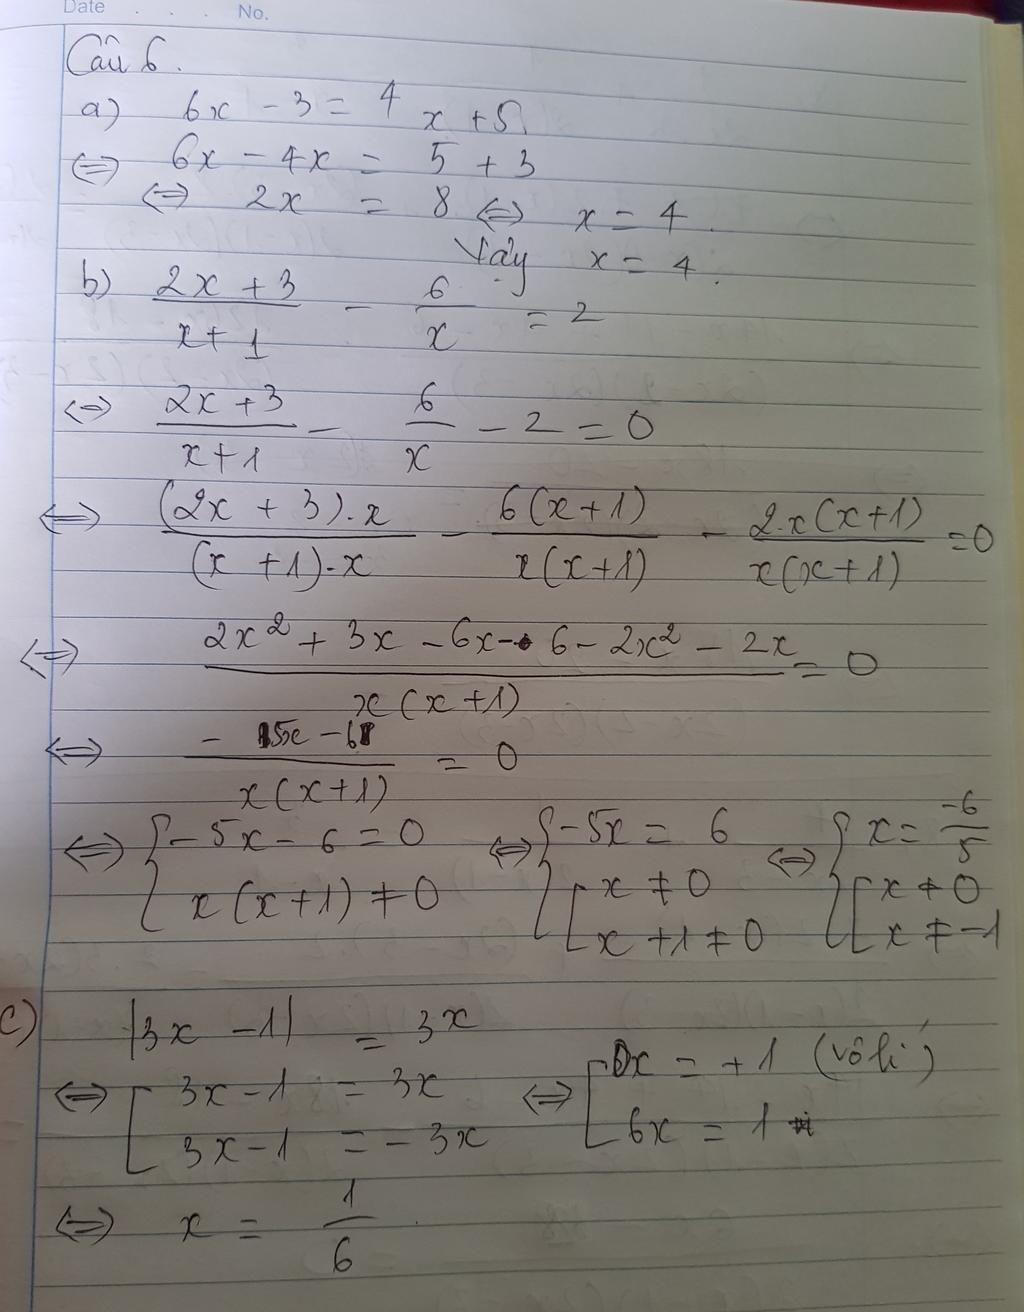 Date . . . No.
Câu 6.
a) 6x - 3 = 4x + 5
⇔ 6x - 4x = 5 + 3
⇔ 2x = 8 ⇔ x = 4.
Vậy x = 4.
b) (2x + 3)/(x + 1) - 6/x = 2
⇔ (2x + 3)/(x + 1) - 6/x - 2 = 0
⇔ ((2x + 3).x)/((x + 1).x) - (6(x + 1))/(x(x + 1)) - (2.x(x + 1))/(x(x + 1)) = 0
⇔ (2x² + 3x - 6x - 6 - 2x² - 2x)/(x(x + 1)) = 0
⇔ (-5x - 6)/(x(x + 1)) = 0
⇔ { -5x - 6 = 0 ⇔ { -5x = 6 ⇔ { x = -6/5
x(x + 1) ≠ 0 [ x ≠ 0 [ x ≠ 0
x + 1 ≠ 0 x ≠ -1
c) |3x - 1| = 3x
⇔ [ 3x - 1 = 3x ⇔ [ 0x = +1 (vô lí)
3x - 1 = - 3x 6x = 1
⇔ x = 1/6